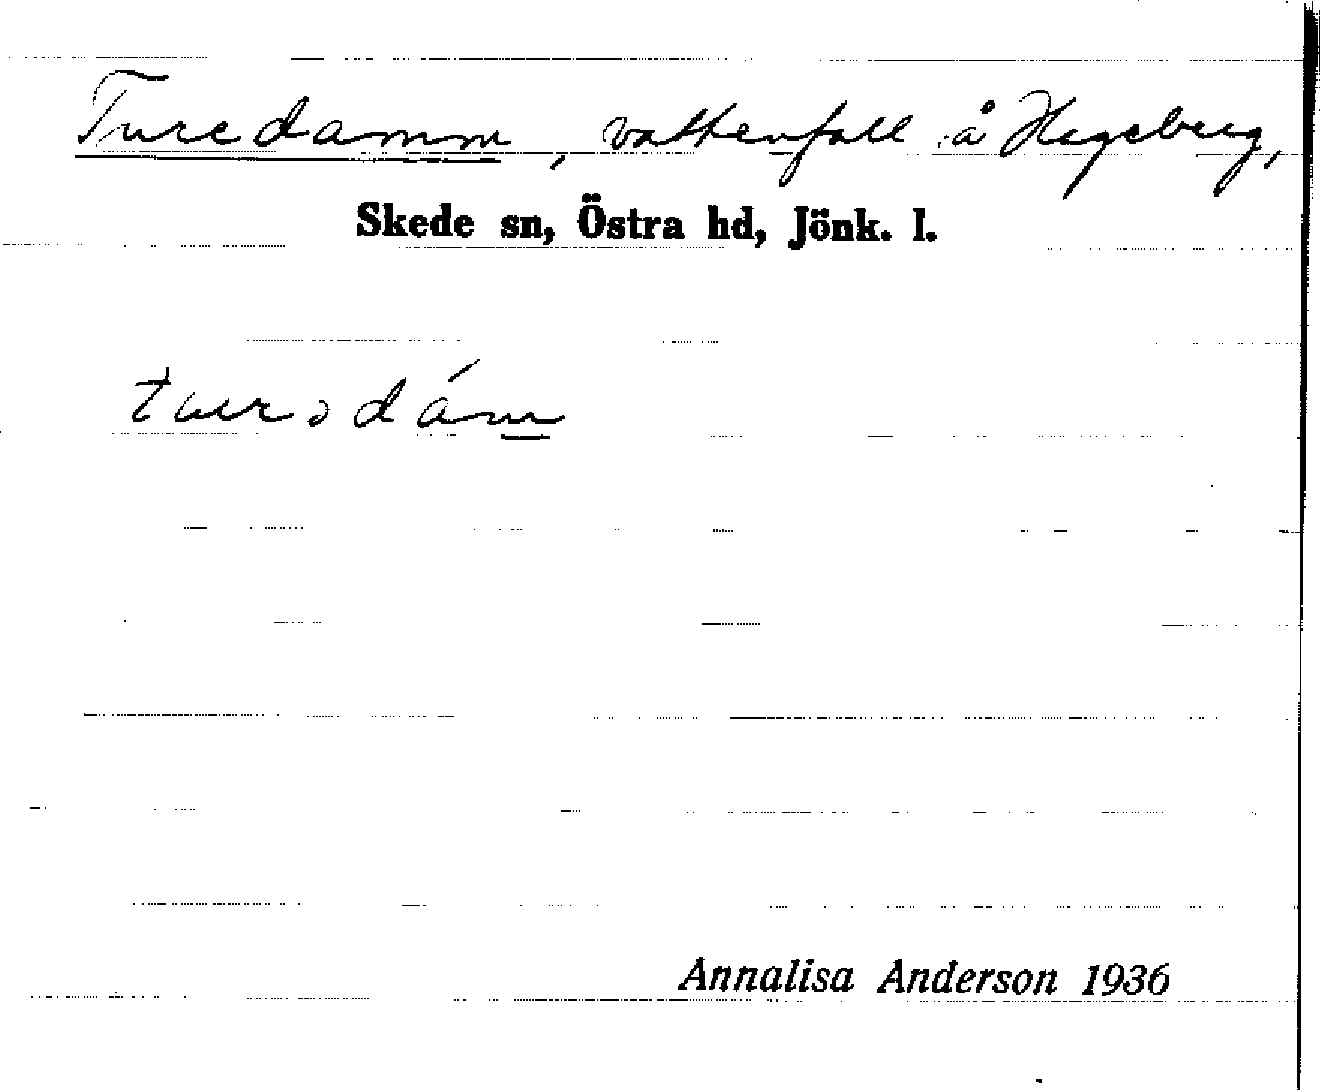 Turedamm, vattenfall å Hageberg,
Skede sn, Östra hd, Jönk. l.
Annalisa Anderson 1936